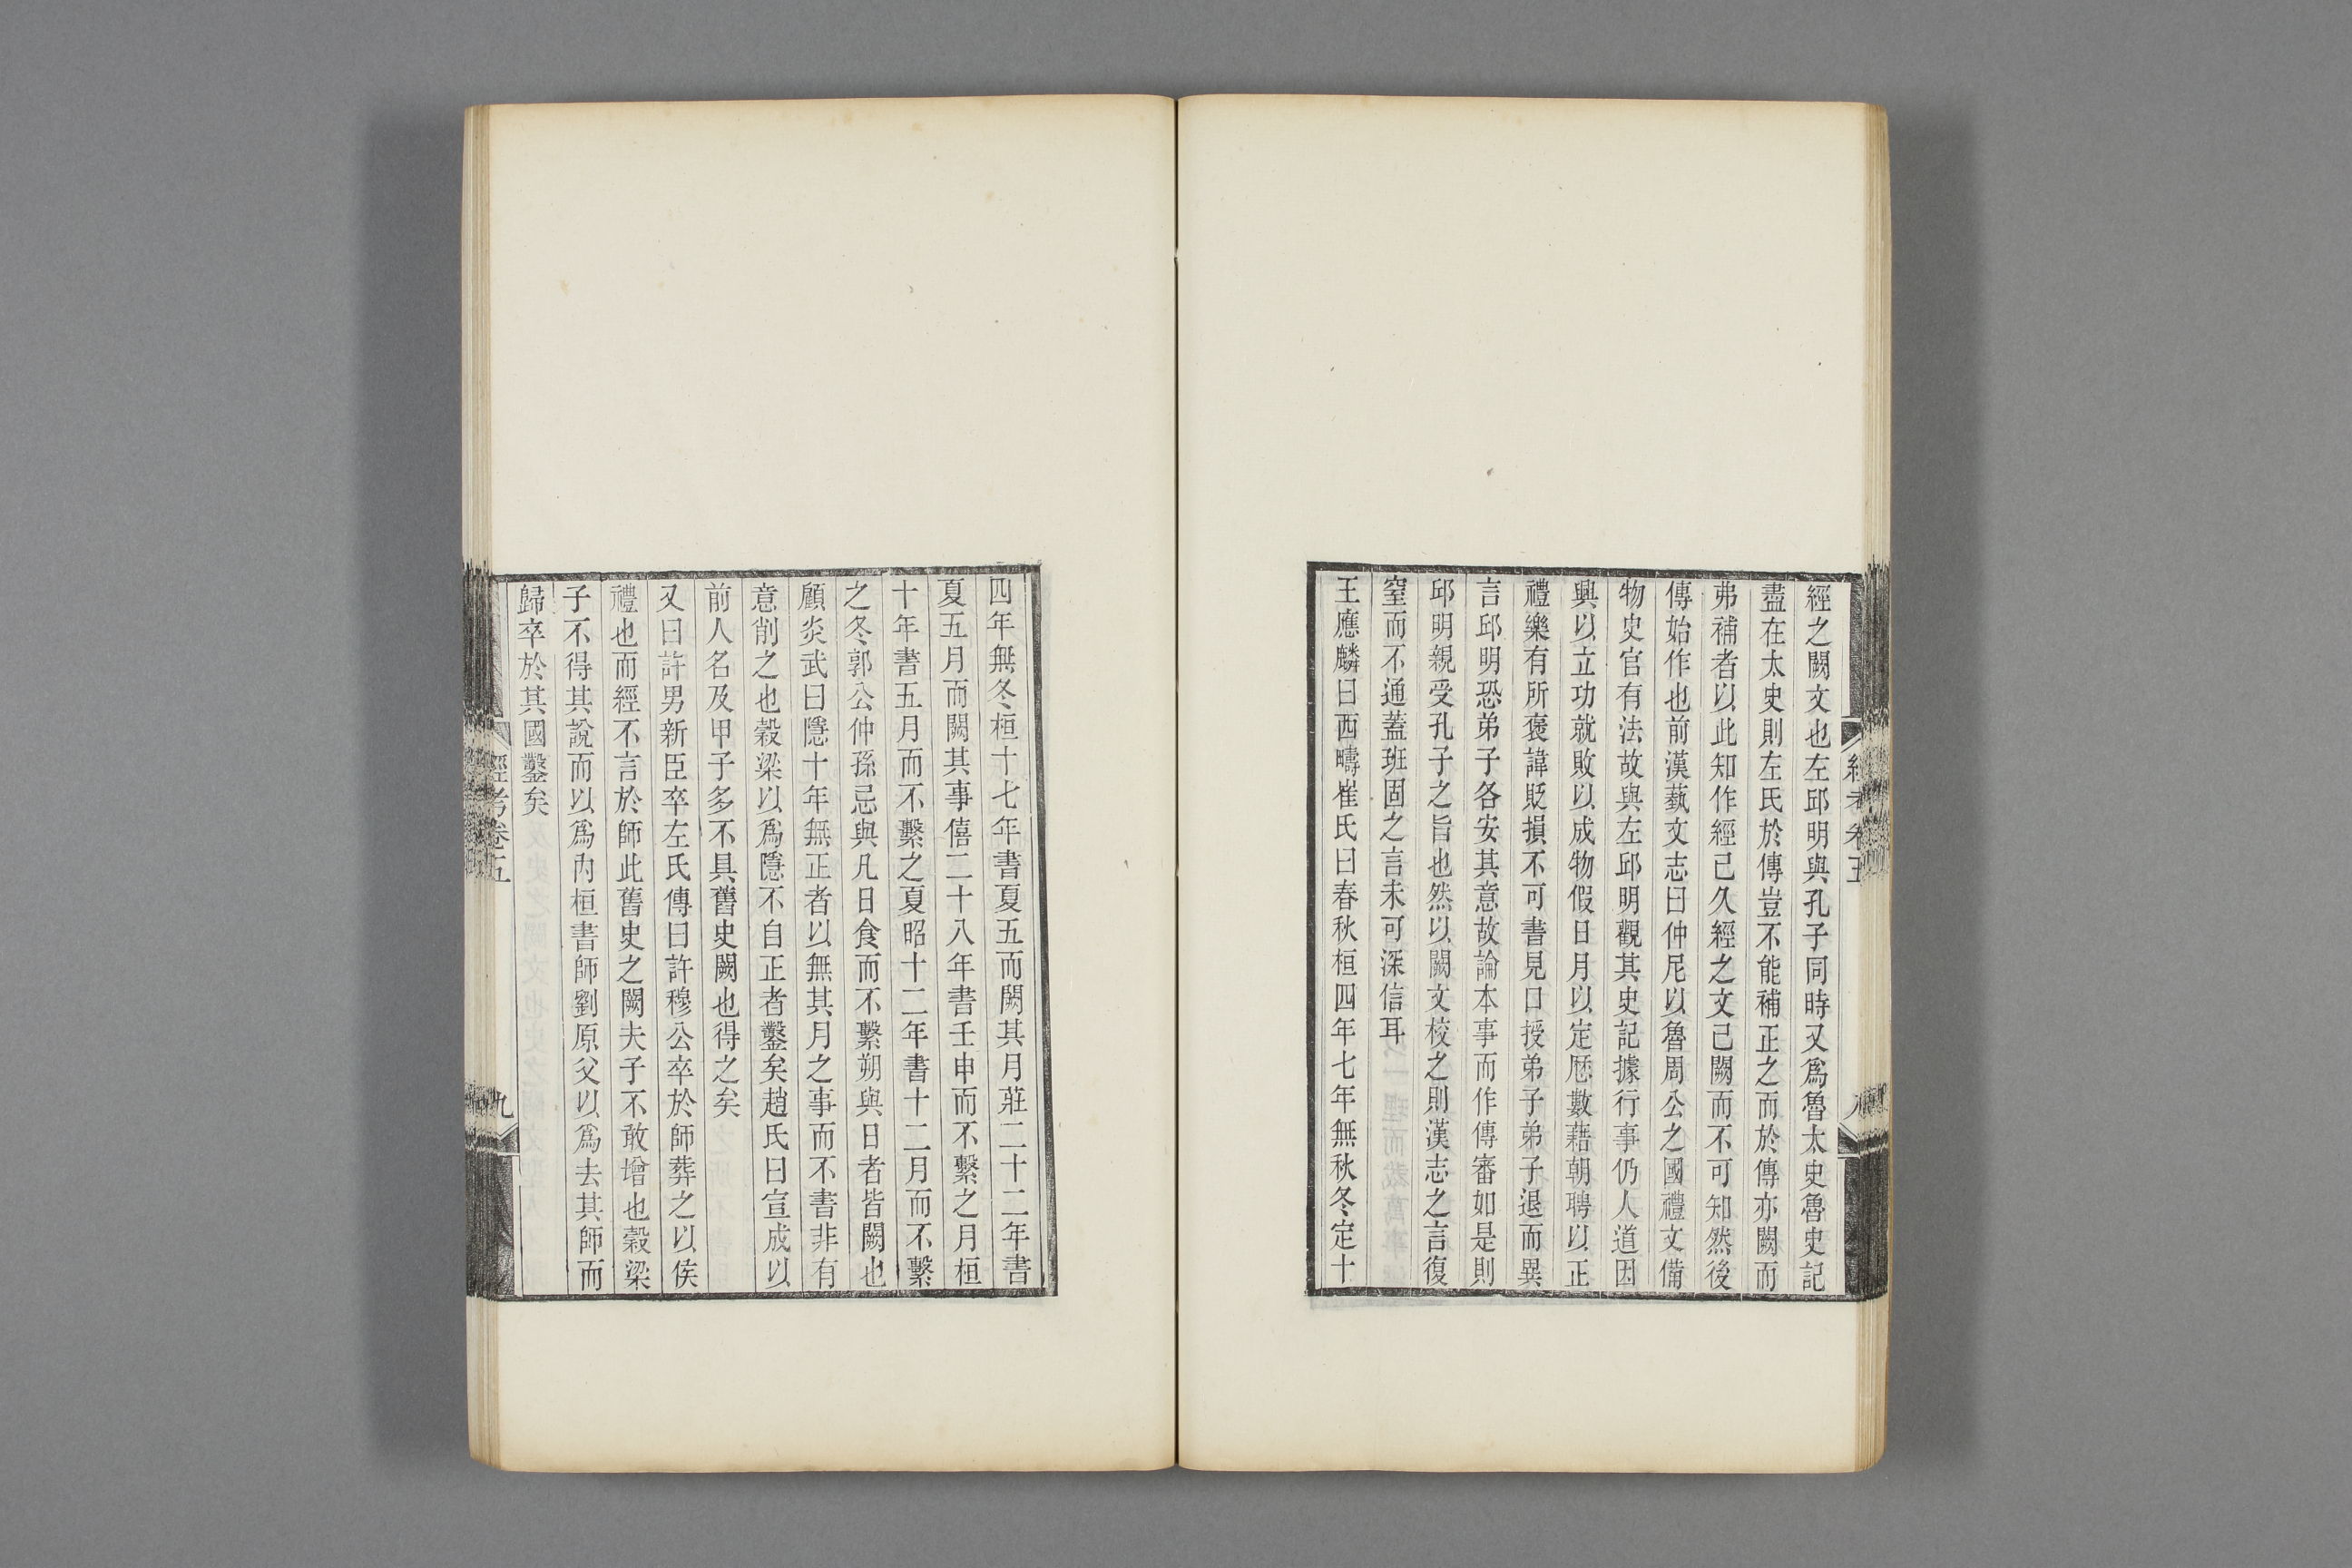 經之闕文也左邱明與孔子同時又爲魯太史魯史記
盡在太史則左氏於傳豈不能補正之而於傳亦闕而
弗補者以此知作經己久經之文己闕而不可知然後
傳始作也前漢藝文志曰仲尼以魯周公之國禮文備
物史官有法故與左邱明觀其史記據行事仍人道因
興以立功就敗以成物假日月以定厯數藉朝聘以正
禮樂有所褒諱貶損不可書見口授弟子弟子退而異
言邱明恐弟子各安其意故論本事而作傳審如是則
邱明親受孔子之旨也然以闕文校之則漢志之言復
窒而不通蓋班固之言未可深信耳
王應麟曰西疇崔氏曰春秋桓四年七年無秋冬定十
經考卷五
八
四年無冬桓十七年書夏五而闕其月莊二十二年書
夏五月而闕其事僖二十八年書壬申而不繫之月桓
十年書五月而不繫之夏昭十二年書十二月而不繫
之冬郭公仲孫忌與凡日食而不繫朔與日者皆闕也
顧炎武曰隱十年無正者以無其月之事而不書非有
意削之也穀梁以爲隱不自正者鑿矣趙氏曰宣成以
前人名及甲子多不具舊史闕也得之矣
又曰許男新臣卒左氏傳曰許穆公卒於師葬之以侯
禮也而經不言於師此舊史之闕夫子不敢增也穀梁
子不得其說而以爲內桓書師劉原父以爲去其師而
歸卒於其國鑿矣
經考卷五
九